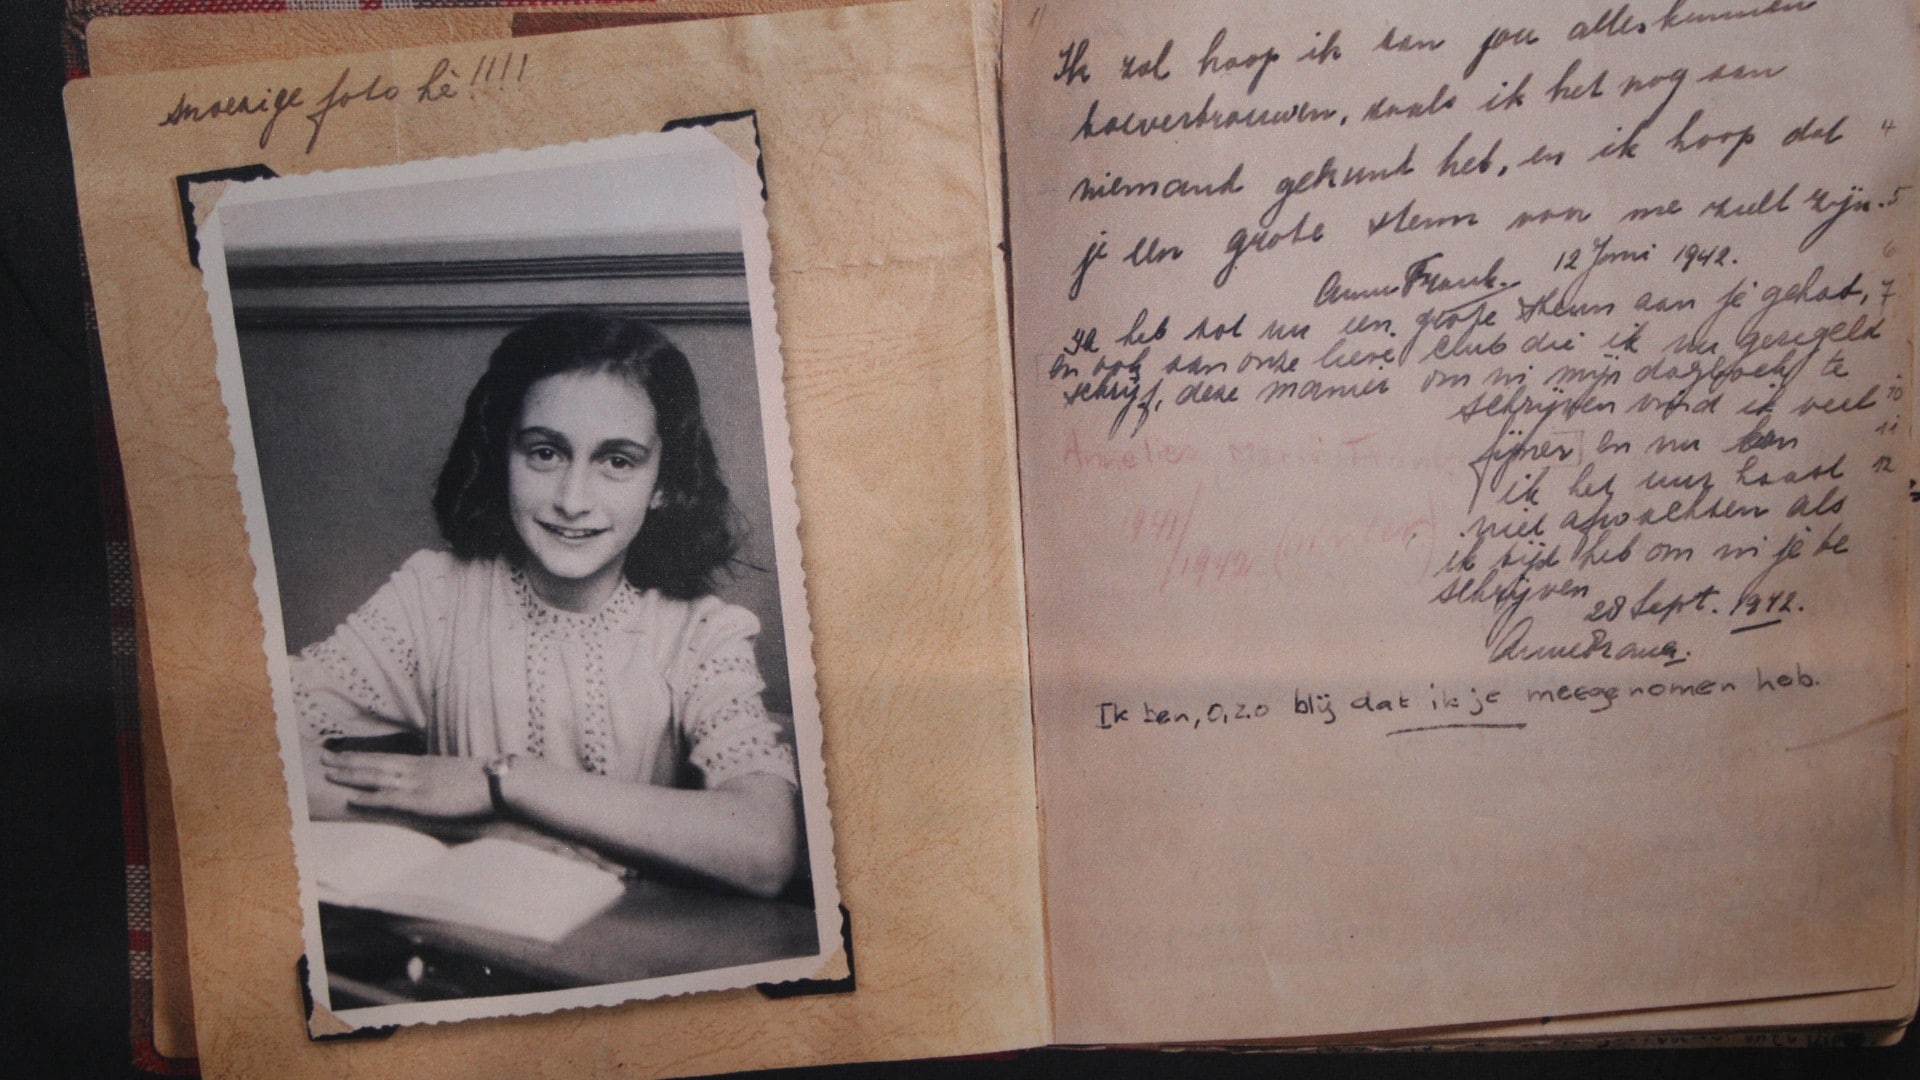 snoezige foto hè!!!!
Ik zal hoop ik aan jou alles kunnen
toevertrouwen, zoals ik het nog aan
niemand gekunt heb, en ik hoop dat 4
je een grote steun van me zult zijn. 5
Anne Frank. 12 Juni 1942. 6
Ik heb tot nu een grote steun aan je gehat, 7
en ook aan onze lieve club die ik nu geregeld
schrijf, deze manier om in mijn dagboek te
schrijven vind ik veel 10
fijner en nu kan 11
ik het uur haast 12
niet afwachten als
ik tijd heb om in je te
schrijven
28 Sept. 1942.
Anne Frank.
Annelies Marie Frank
1941/
1942
Ik ben, o, zo blij dat ik je meegenomen heb.